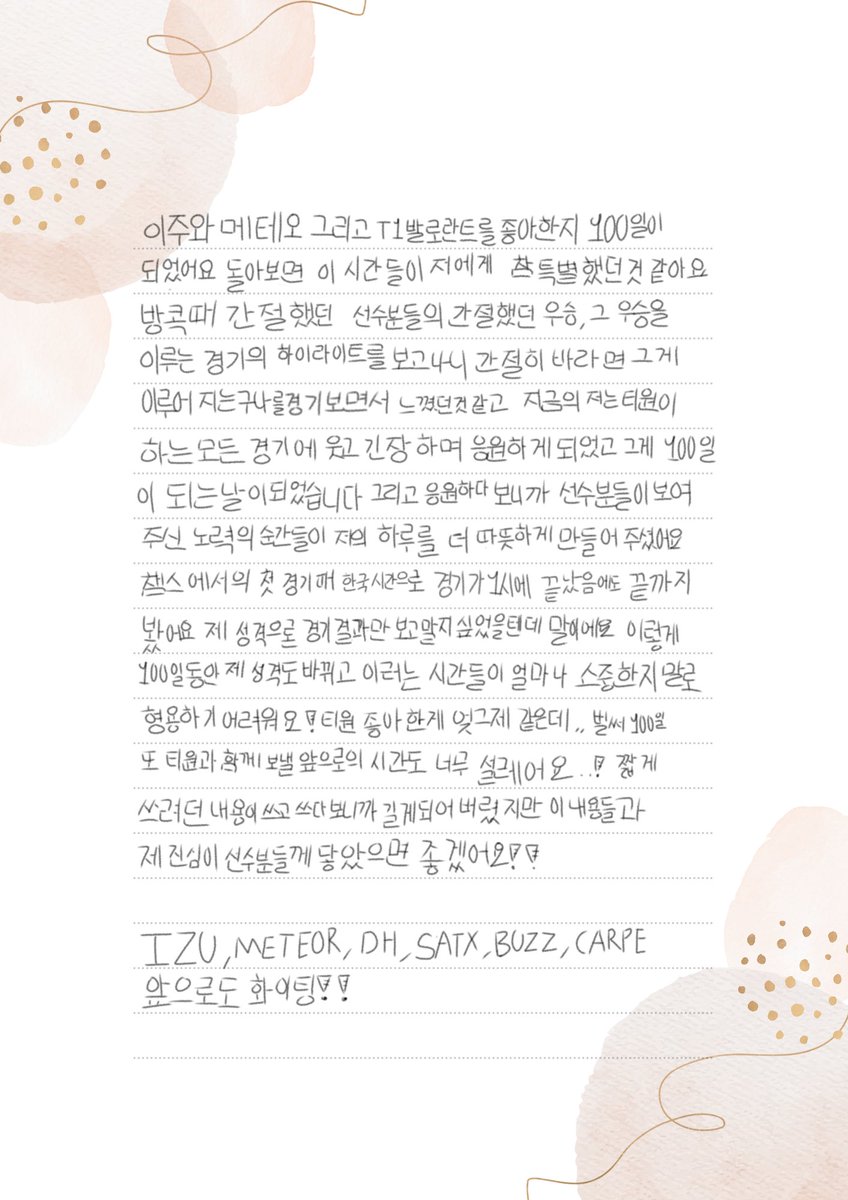 이주와 메테오 그리고 T1발로란트를 좋아한지 100일이
되었어요 돌아보면 이 시간들이 저에게 참 특별했던것 같아요
방콕때 간절했던 선수분들의 간절했던 우승, 그 우승을
이루는 경기의 하이라이트를 보고나니 간절히 바라면 그게
이루어 지는구나를경기보면서 느꼈던것같고 지금의 저는티원이
하는 모든 경기에 웃고 긴장 하며 응원하게 되었고 그게 100일
이 되는날이되었습니다 그리고 응원하다 보니까 선수분들이 보여
주신 노력의 순간들이 저의 하루를 더 따뜻하게 만들어 주셨어요
챔스에서의 첫 경기때 한국시간으로 경기가1시에 끝났음에도 끝까지
봤어요 제 성격으로 경기결과만 보고말지싶었을텐데 말이에요 이렇게
100일동안 제 성격도 바뀌고 이러는 시간들이 얼마나 소중한지 말로
형용하기 어려워요! 티원 좋아한게 엊그제 같은데,, 벌써 100일
또 티원과 함께 보낼 앞으로의 시간도 너무 설레어요...! 짧게
쓰려던 내용이 쓰고 쓰다보니까 길게되어 버렸지만 이 내용들과
제 진심이 선수분들께 닿았으면 좋겠어요!!
IZU, METEOR, DH, SATX, BUZZ, CARPE
앞으로도 화이팅!!